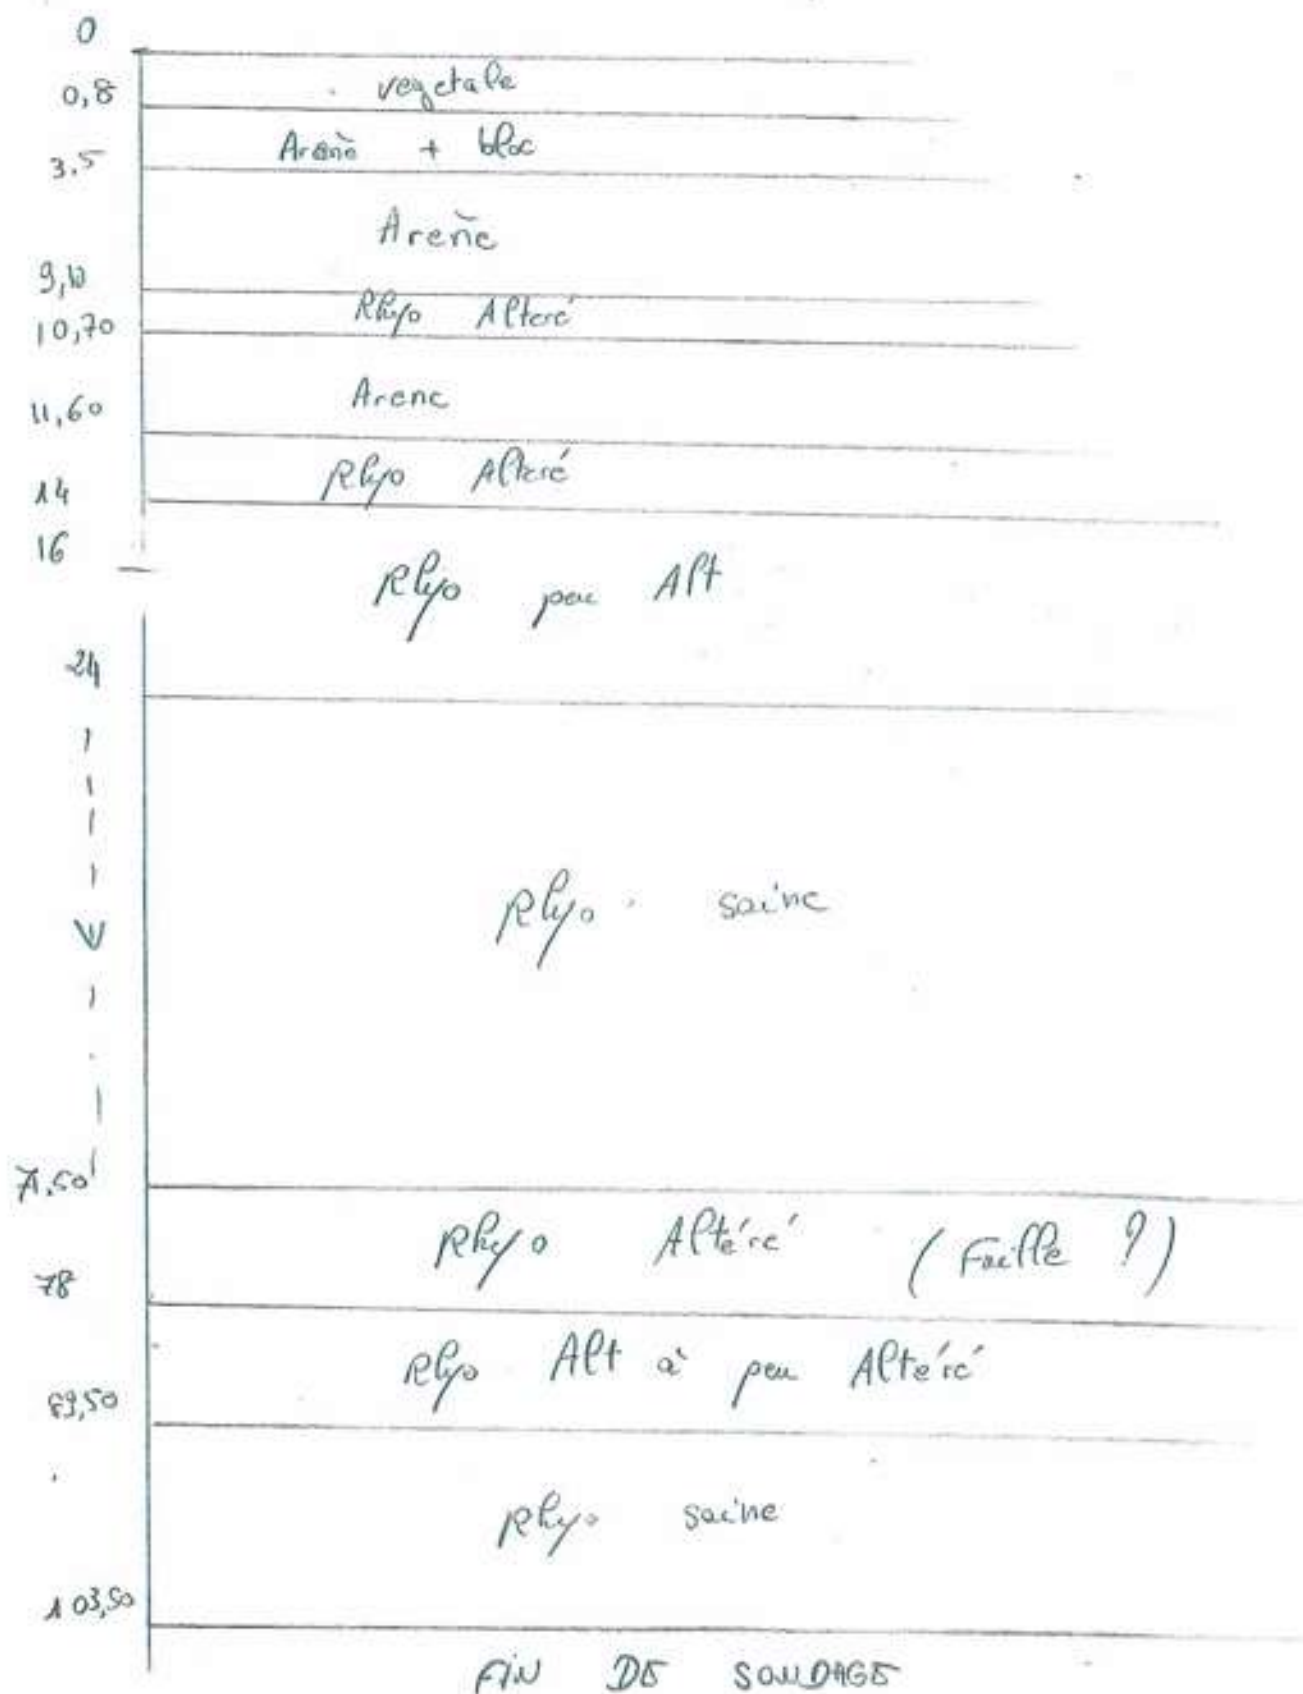 0
vegetale
0,8
Arène + bloc
3.5
Arène
9,10
Rhyo Alteré
10,70
Arene
11,60
Rhyo Alteré
14
16
Rhyo peu Alt
24
Rhyo saine
71.50
Rhyo Altéré (Faille ?)
78
Rhyo Alt à peu Altéré
89,50
Rhyo saine
103,50
FIN DE SONDAGE